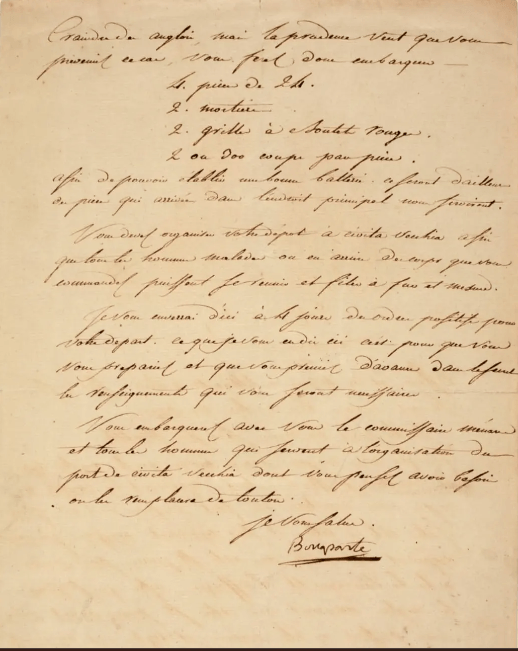 Craindre des anglois, mais la prudence veut que vous
preveniez ce cas, vous ferez donc embarquer
4. pieces de 24.
2. mortiers
2. grilles à boulet rouge.
2 ou 300 coups par piece.
afin de pouvoir etablir une bonne batterie. ce seront d'ailleurs
des pieces qui arrivées dans l'endroit principal nous serviront.
Vous devez organiser votre depot à civita vechia afin
que tous les hommes malades ou en arriere des corps que vous
commandez puissent se reunir et filer à fur et mesure.
Je vous enverrai d'ici à 4 jours des ordres positifs pour
votre depart. ce que je vous en dis ici c'est pour que vous
vous prepariez et que vous preniez d'avance dans le secret
les renseignements qui vous seront necessaires.
Vous embarquerez avec vous le commissaire
et tous les hommes qui servent à l'organisation du
port de civita vechia dont vous pensez avoir besoin
ou les remplacer de toulon.
je vous salue.
Bonaparte